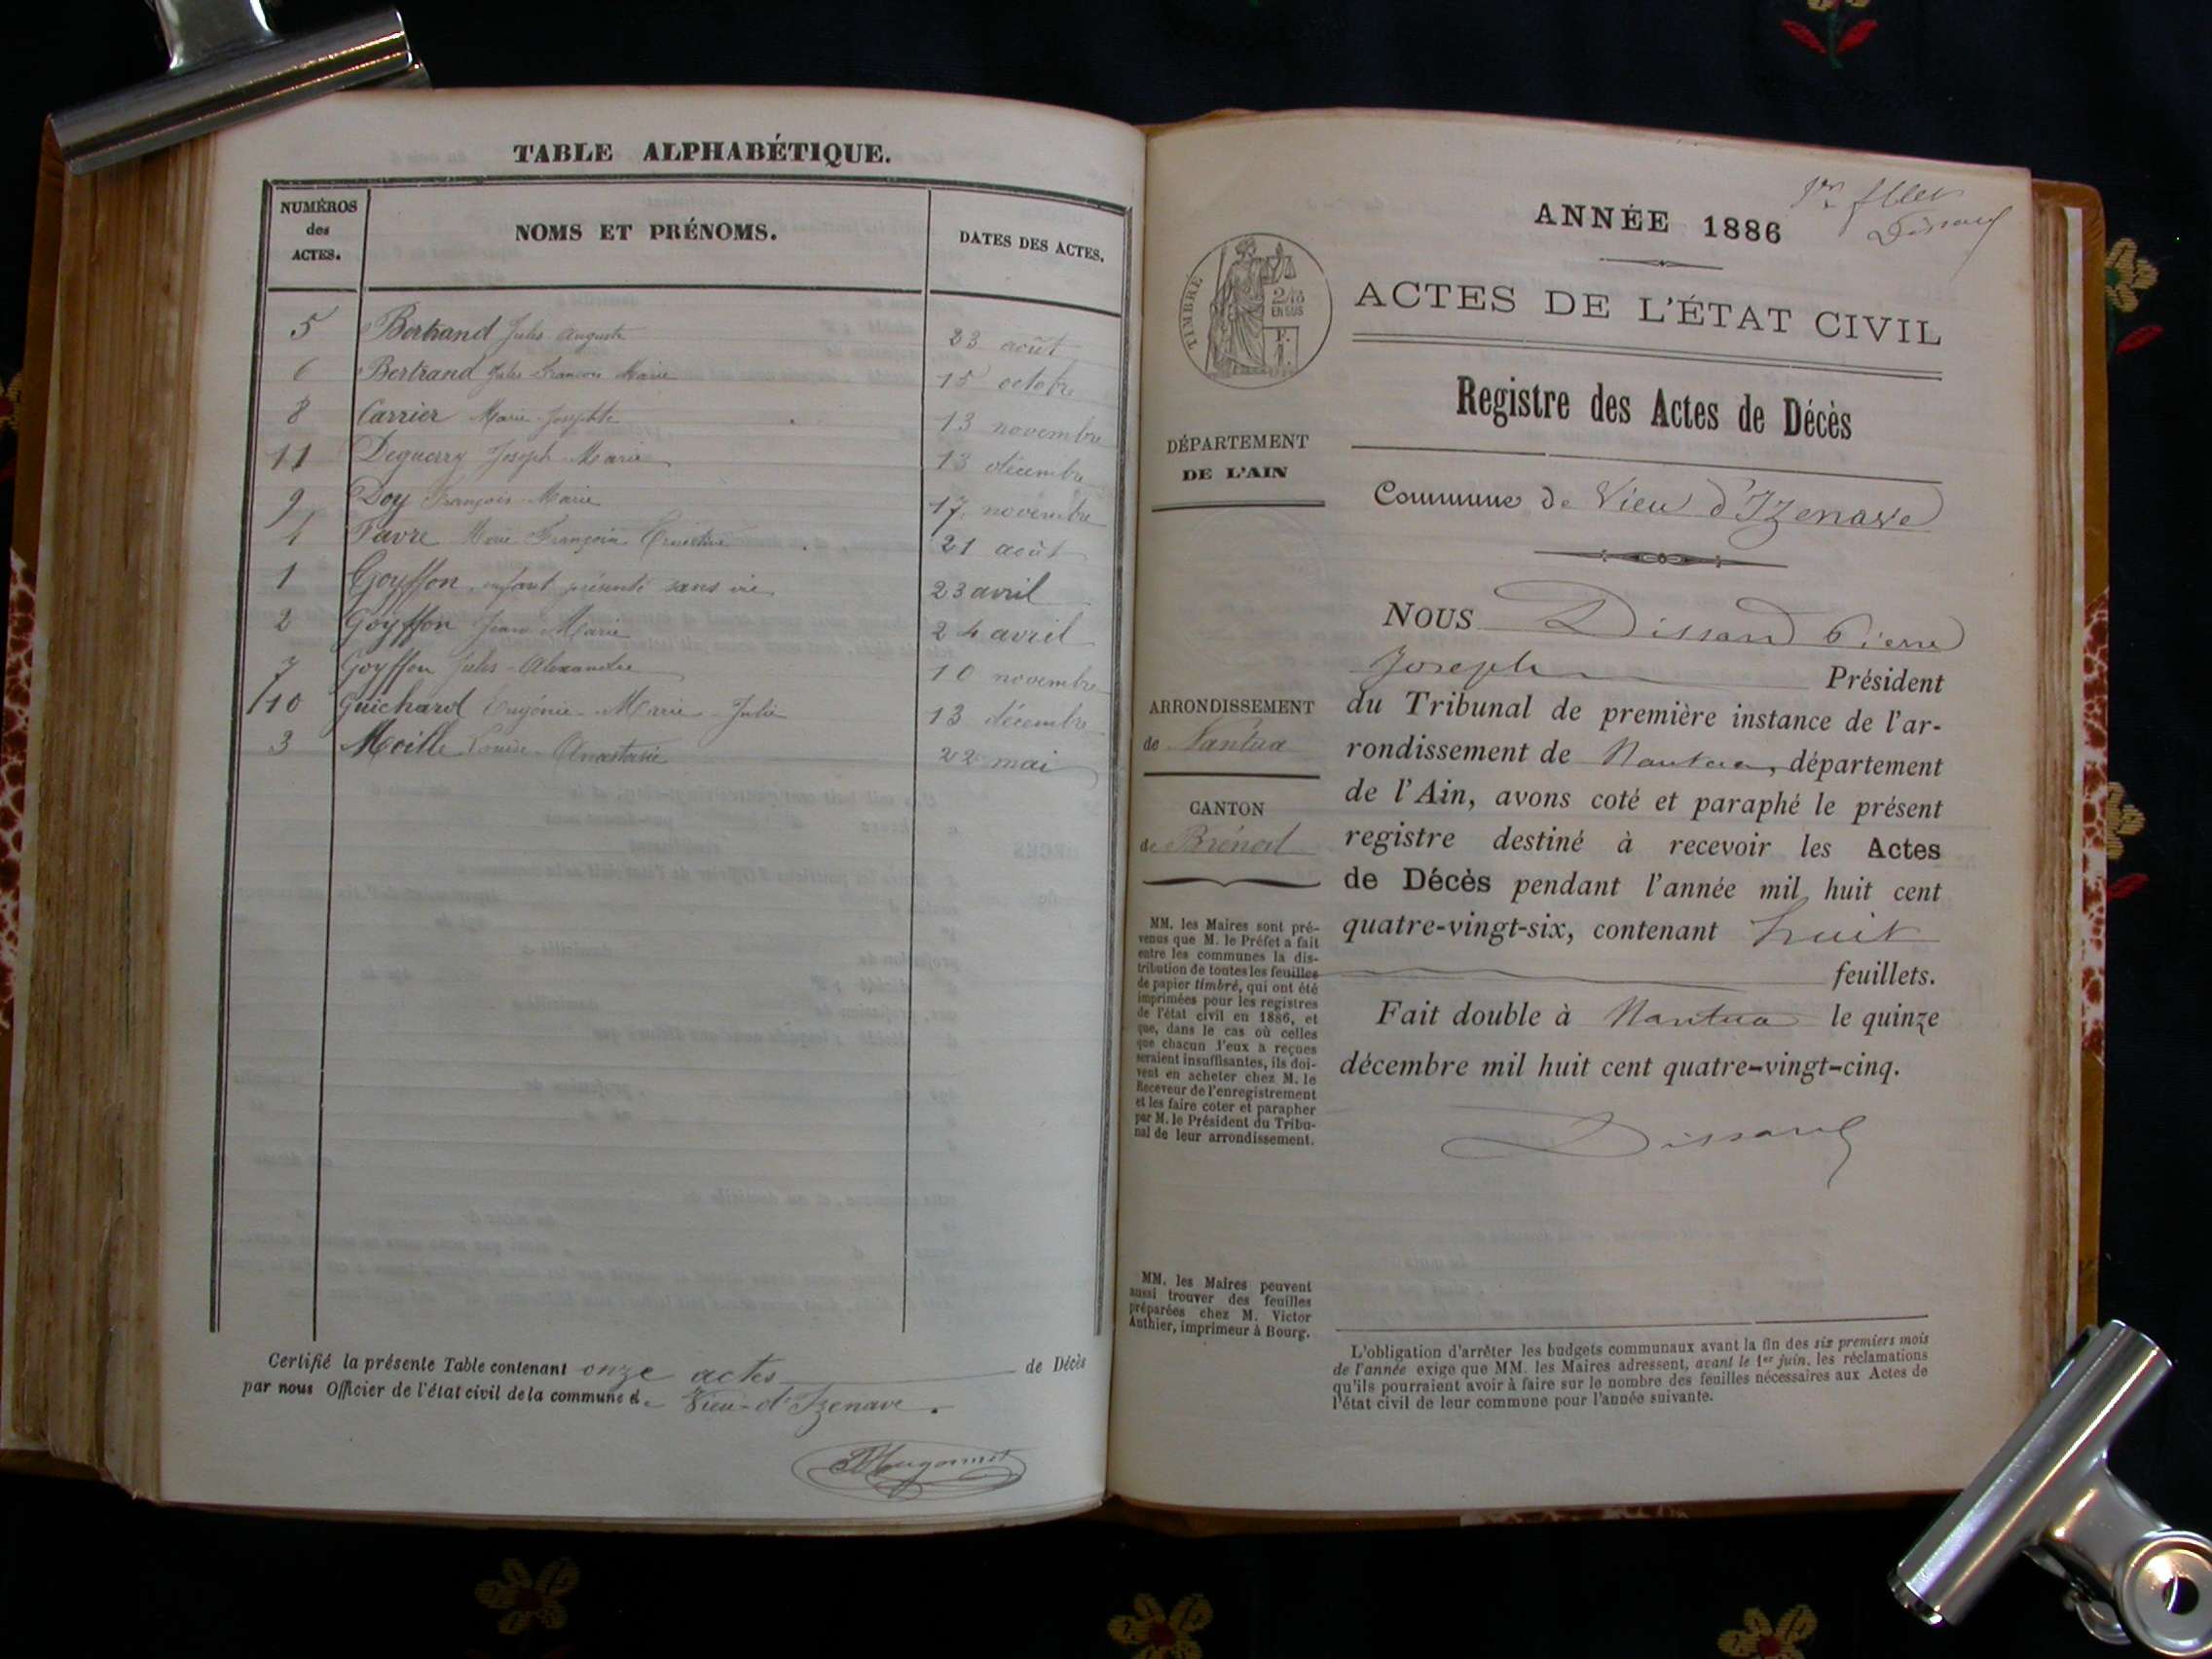 TABLE ALPHABÉTIQUE.
NUMÉROS des ACTES.
NOMS ET PRÉNOMS.
DATES DES ACTES.
5 Bertrand Jules Auguste 23 août
6 Bertrand Jules François Marie 15 octobre
8 Carrier Marie-Josephte 13 novembre
11 Deguerry Joseph-Marie 13 décembre
9 Doy François-Marie 17 novembre
4 Favre Marie Françoise 21 août
1 Goyffon, enfant présenté sans vie 23 avril
2 Goyffon Jean-Marie 24 avril
7 Goyffon Jules-Alexandre 10 novembre
10 Guichard Eugénie-Marie-Julie 13 décembre
3 Moille Louise-Anastasie 22 mai
Certifié la présente Table contenant onze actes de Décès
par nous Officier de l'état civil de la commune de Vieu-d'Izenave.
Hugonnet
1er fllet
Dissard
ANNÉE 1886
TIMBRE
2/10
EN SUS
ACTES DE L'ÉTAT CIVIL
Registre des Actes de Décès
DÉPARTEMENT
DE L'AIN
Commune de Vieu d'Izenave
ARRONDISSEMENT
de Nantua
CANTON
de Brénod
MM. les Maires sont pré-
venus que M. le Préfet a fait
entre les communes la dis-
tribution de toutes les feuilles
de papier timbré, qui ont été
imprimées pour les registres
de l'état civil en 1886, et
que, dans le cas où celles
que chacun d'eux a reçues
seraient insuffisantes, ils doi-
vent en acheter chez M. le
Receveur de l'enregistrement
et les faire coter et parapher
par M. le Président du Tribu-
nal de leur arrondissement.
MM. les Maires peuvent
aussi trouver des feuilles
préparées chez M. Victor
Authier, imprimeur à Bourg.
NOUS Dissard Pierre
Joseph Président
du Tribunal de première instance de l'ar-
rondissement de Nantua, département
de l'Ain, avons coté et paraphé le présent
registre destiné à recevoir les Actes
de Décès pendant l'année mil huit cent
quatre-vingt-six, contenant huit
feuillets.
Fait double à Nantua le quinze
décembre mil huit cent quatre-vingt-cinq.
Dissard
L'obligation d'arrêter les budgets communaux avant la fin des six premiers mois
de l'année exige que MM. les Maires adressent, avant le 1er juin, les réclamations
qu'ils pourraient avoir à faire sur le nombre des feuilles nécessaires aux Actes de
l'état civil de leur commune pour l'année suivante.